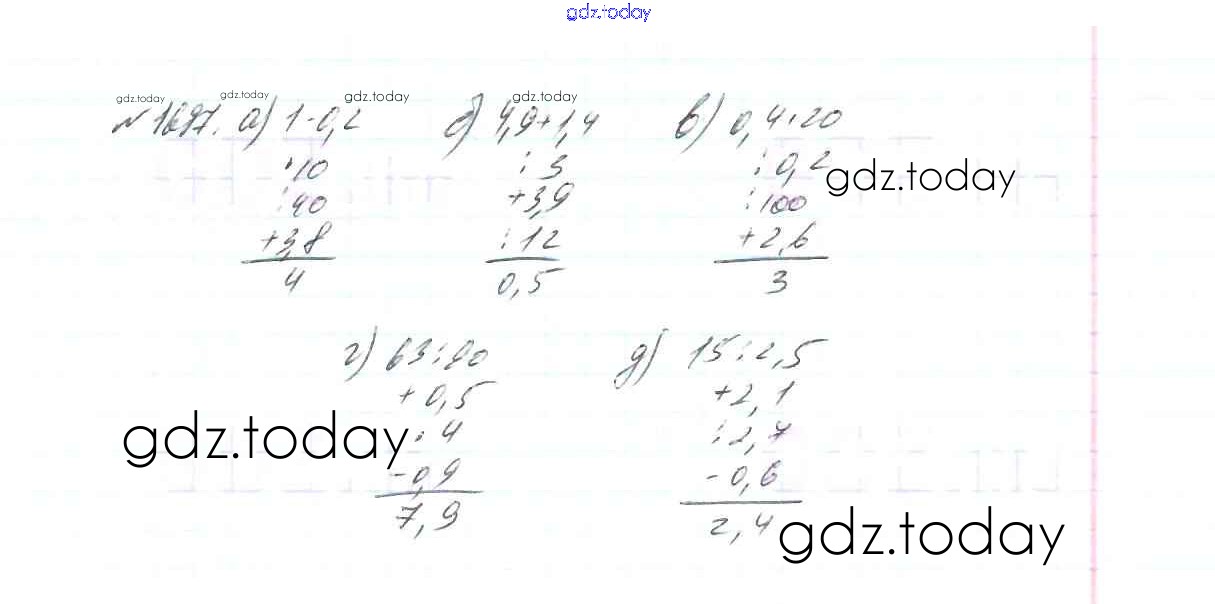 gdz.today
gdz.today gdz.today gdz.today gdz.today
№1697. а) 1-0,2 б) 4,9+1,4 в) 0,4·20
·10 :3 :0,2 gdz.today
:40 +3,9 :100
+3,8 :12 +2,6
4 0,5 3
г) 63:90 д) 15:2,5
+0,5 +2,1
gdz.today :4 :2,7
-0,9 -0,6
7,9 2,4 gdz.today